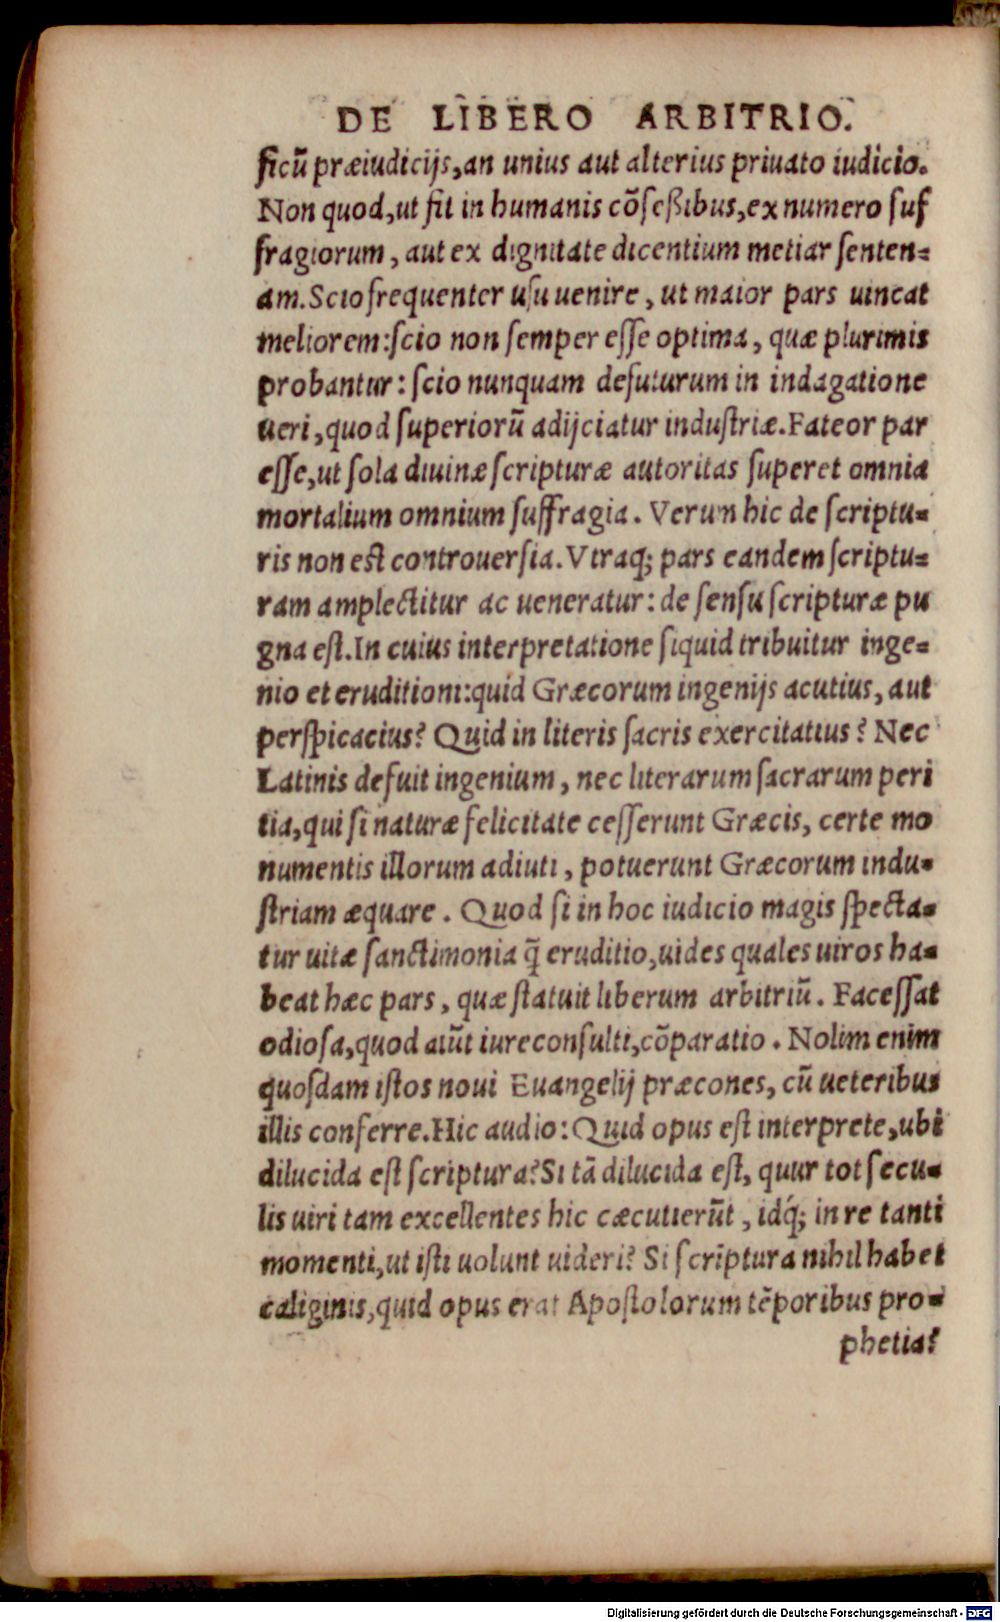 DE LIBERO ARBITRIO.
ficū præiudicijs, an unius aut alterius priuato iudicio.
Non quod, ut fit in humanis cōſeßibus, ex numero ſuf
fragiorum, aut ex dignitate dicentium metiar ſenten=
am. Scio frequenter uſu uenire, ut maior pars uincat
meliorem: ſcio non ſemper eſſe optima, quæ plurimis
probantur: ſcio nunquam defuturum in indagatione
ueri, quod ſuperiorū adijciatur induſtriæ. Fateor par
eſſe, ut ſola diuinæ ſcripturæ autoritas ſuperet omnia
mortalium omnium ſuffragia. Verum hic de ſcriptu=
ris non eſt controuerſia. Vtraq; pars eandem ſcriptu=
ram amplectitur ac ueneratur: de ſenſu ſcripturæ pu
gna eſt. In cuius interpretatione ſiquid tribuitur inge=
nio et eruditioni: quid Græcorum ingenijs acutius, aut
perſpicacius? Quid in literis ſacris exercitatius? Nec
Latinis defuit ingenium, nec literarum ſacrarum peri
tia, qui ſi naturæ felicitate ceſſerunt Græcis, certe mo
numentis illorum adiuti, potuerunt Græcorum indu=
ſtriam æquare. Quod ſi in hoc iudicio magis ſpecta=
tur uitæ ſanctimonia q̄ eruditio, uides quales uiros ha=
beat hæc pars, quæ ſtatuit liberum arbitriū. Faceſſat
odioſa, quod aiūt iureconſulti, cōparatio. Nolim enim
quoſdam iſtos noui Euangelij præcones, cū ueteribus
illis conferre. Hic audio: Quid opus eſt interprete, ubi
dilucida eſt ſcriptura? Si tā dilucida eſt, quur tot ſecu=
lis uiri tam excellentes hic cæcutierūt, idq́; in re tanti
momenti, ut iſti uolunt uideri? Si ſcriptura nihil habet
caliginis, quid opus erat Apoſtolorum tēporibus pro=
phetia?
Digitalisierung gefördert durch die Deutsche Forschungsgemeinschaft - DFG